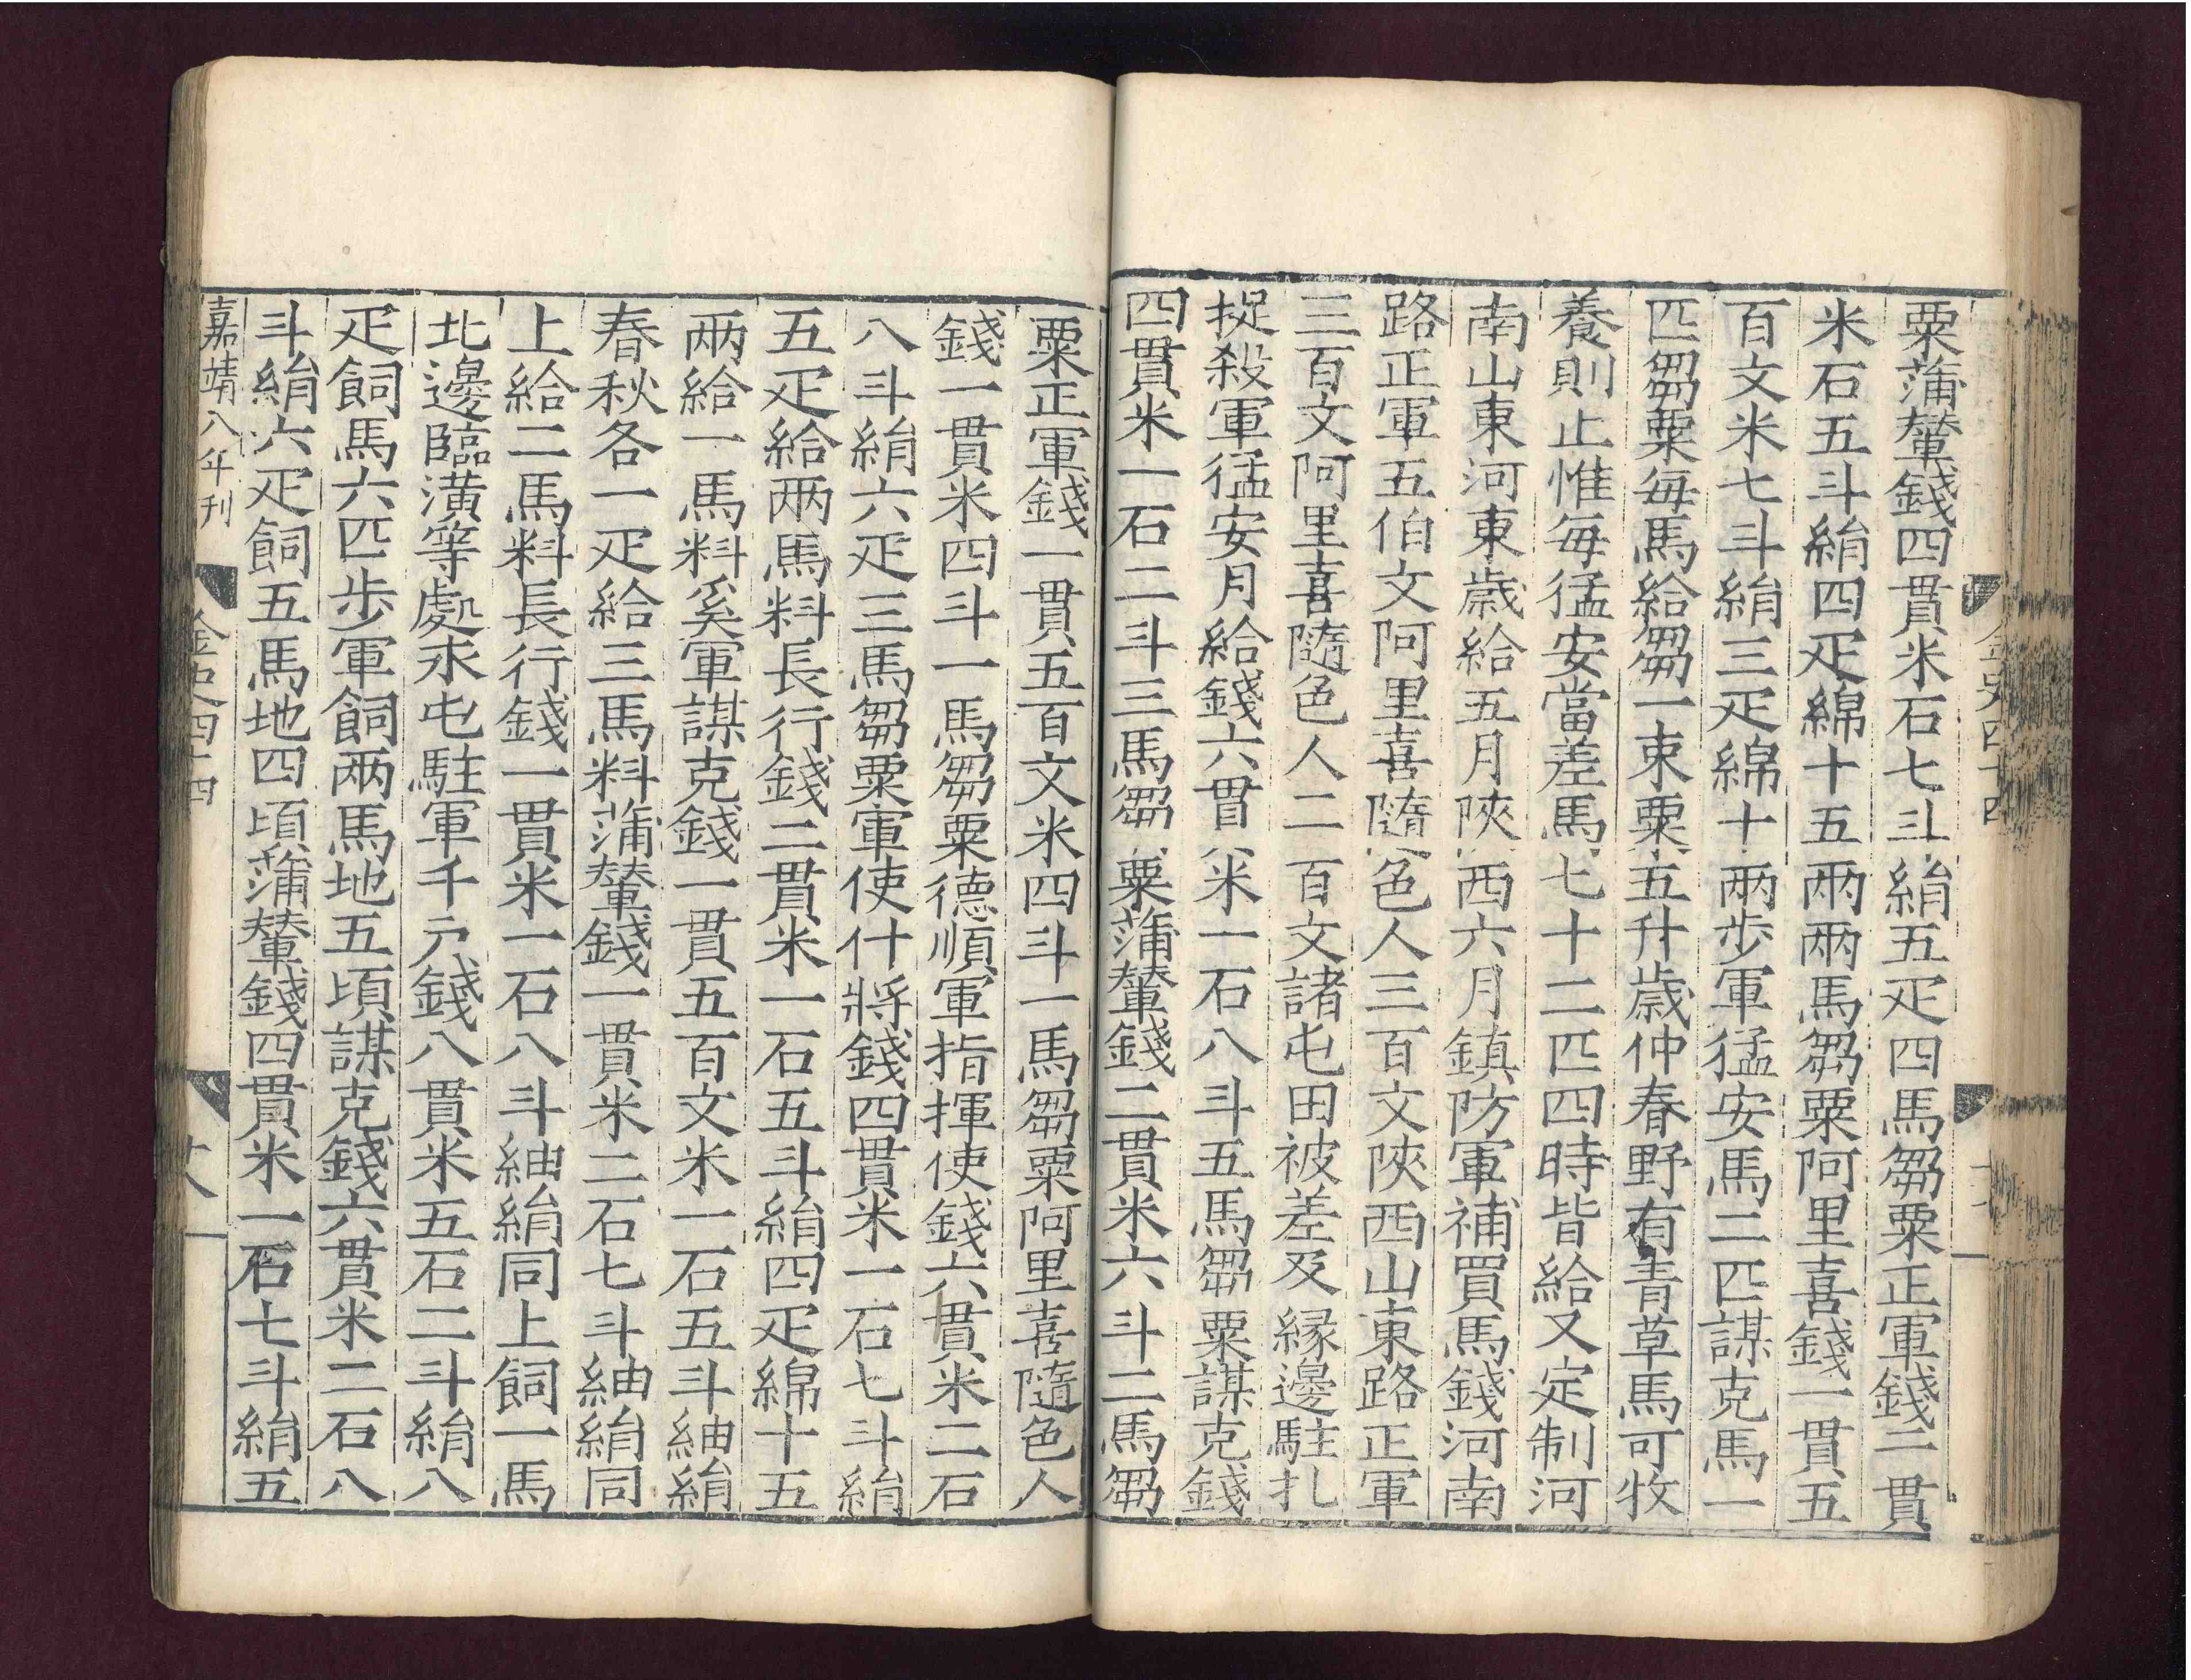 粟蒲輦錢四貫米石七斗絹五疋四馬芻粟正軍錢二貫
米石五斗絹四疋綿十五兩兩馬芻粟阿里喜錢一貫五
百文米七斗絹三疋綿十兩步軍猛安馬二匹謀克馬一
匹芻粟每馬給芻一束粟五升歲仲春野有青草馬可牧
養則止惟每猛安當差馬七十二匹四時皆給又定制河
南山東河東歲給五月陜西六月鎮防軍補買馬錢河南
路正軍五伯文阿里喜隨色人三百文陜西山東路正軍
三百文阿里喜隨色人二百文諸屯田被差及緣邊駐扎
捉殺軍猛安月給錢六貫米一石八斗五馬芻粟謀克錢
四貫米一石二斗三馬芻粟蒲輦錢二貫米六斗二馬芻
金史四十四
粟正軍錢一貫五百文米四斗一馬芻粟阿里喜隨色人
錢一貫米四斗一馬芻粟德順軍指揮使錢六貫米二石
八斗絹六疋三馬芻粟軍使什將錢四貫米一石七斗絹
五疋給兩馬料長行錢二貫米一石五斗絹四疋綿十五
兩給一馬料奚軍謀克錢一貫五百文米一石五斗紬絹
春秋各一疋給三馬料蒲輦錢一貫米二石七斗紬絹同
上給二馬料長行錢一貫米一石八斗紬絹同上飼一馬
北邊臨潢等處永屯駐軍千戶錢八貫米五石二斗絹八
疋飼馬六匹步軍飼兩馬地五頃謀克錢六貫米二石八
斗絹六疋飼五馬地四頃蒲輦錢四貫米一石七斗絹五
嘉靖八年刊
金史四十四
十八